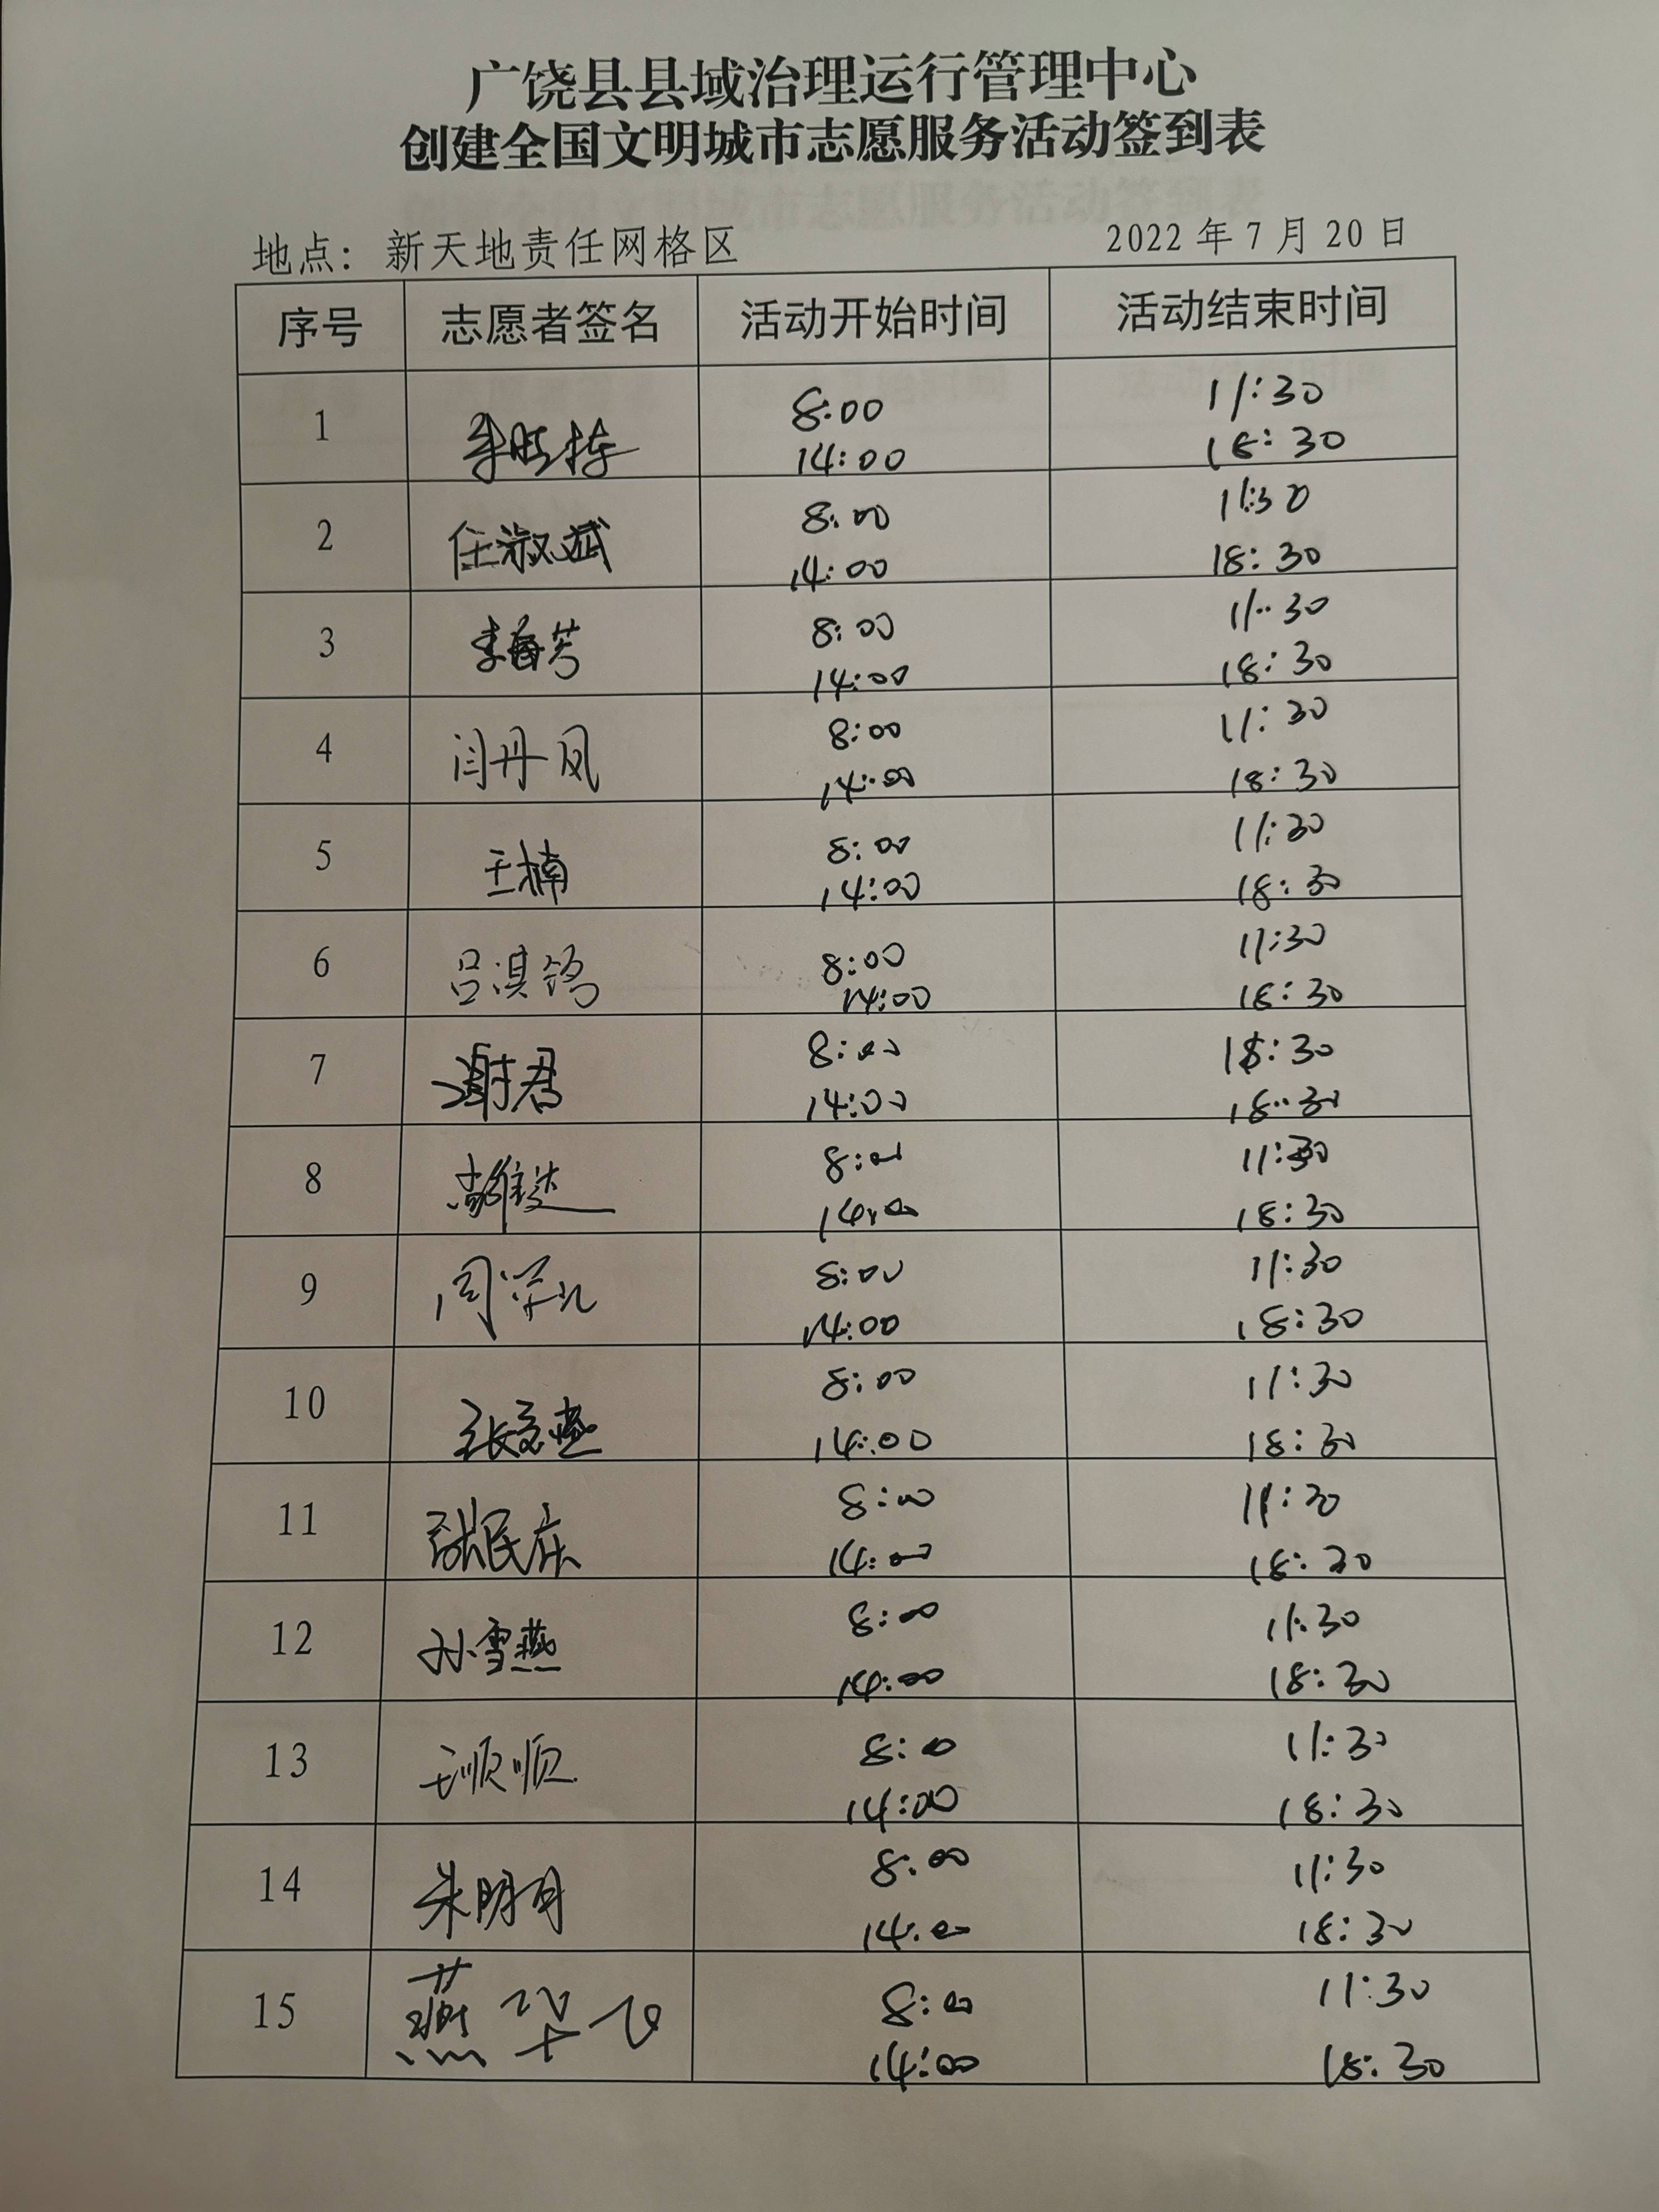 广饶县县域治理运行管理中心
创建全国文明城市志愿服务活动签到表
地点：新天地责任网格区 2022年7月20日
序号 志愿者签名 活动开始时间 活动结束时间
1 8:00 11:30
14:00 18:30
2 任淑斌 8:00 11:30
14:00 18:30
3 李春芳 8:00 11:30
14:00 18:30
4 闫丹凤 8:00 11:30
14:00 18:30
5 王楠 8:00 11:30
14:00 18:30
6 吕淇 8:00 11:30
14:00 18:30
7 谢君 8:00 18:30
14:00 18:30
8 8:00 11:30
14:00 18:30
9 周 8:00 11:30
14:00 18:30
10 张 燕 8:00 11:30
14:00 18:30
11 张民庆 8:00 11:30
14:00 18:30
12 孙雪燕 8:00 11:30
14:00 18:30
13 王顺顺 8:00 11:30
14:00 18:30
14 朱明月 8:00 11:30
14:00 18:30
15 燕华飞 8:00 11:30
14:00 18:30